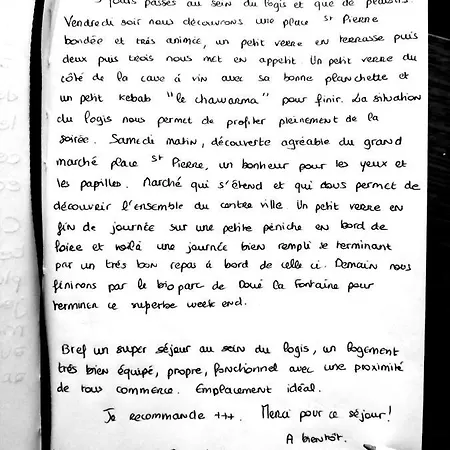 jours passés au sein du logis et que de plaisirs.
Vendredi soir nous découvrons une place st Pierre
bondée et très animée, un petit verre en terrasse puis
deux puis trois nous met en appétit. Un petit verre du
côté de la cave à vin avec sa bonne planchette et
un petit kebab "le chawarma" pour finir. La situation
du logis nous permet de profiter pleinement de la
soirée. Samedi matin, découverte agréable du grand
marché place st Pierre, un bonheur pour les yeux et
les papilles. Marché qui s'étend et qui vous permet de
découvrir l'ensemble du centre ville. Un petit verre en
fin de journée sur une petite péniche en bord de
Loire et voilà une journée bien rempli se terminant
par un très bon repas à bord de celle ci. Demain nous
finirons par le bio parc de Doué la Fontaine pour
terminer ce superbe week end.
Bref un super séjour au sein du logis, un logement
très bien équipé, propre, fonctionnel avec une proximité
de tous commerce. Emplacement idéal.
Je recommande +++. Merci pour ce séjour!
A bientôt.